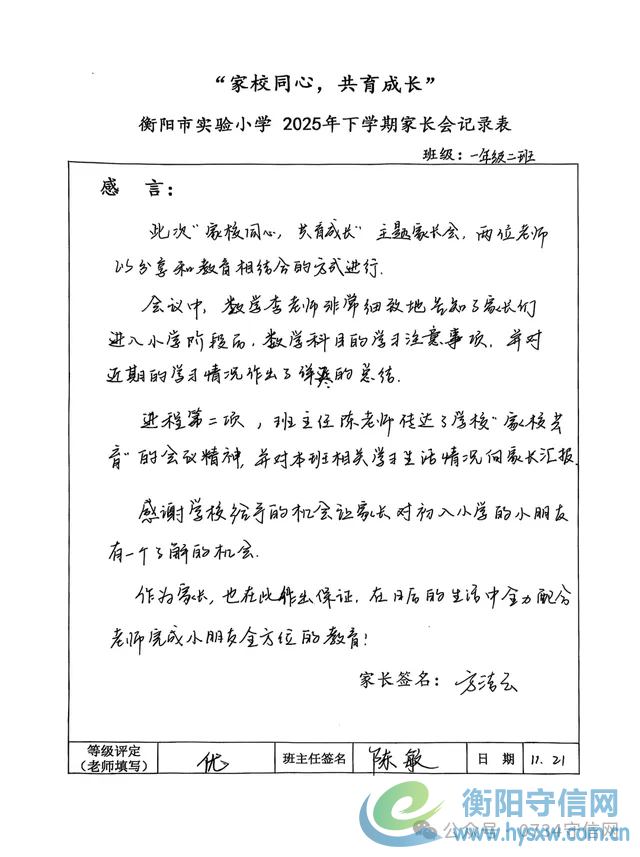 “家校同心，共育成长”
衡阳市实验小学 2025年下学期家长会记录表
班级：一年级二班
感 言：
此次“家校同心，共育成长”主题家长会，两位老师
以分享和教育相结合的方式进行.
会议中，数学李老师非常细致地告知了家长们
进入小学阶段后，数学科目的学习注意事项，并对
近期的学习情况作出了详 的总结.
进程第二项，班主任陈老师传达了学校“家校共
育”的会议精神，并对本班相关学习生活情况向家长汇报.
感谢学校给予的机会让家长对初入小学的小朋友
有一个了解的机会.
作为家长，也在此作出保证，在日后的生活中全力配合
老师完成小朋友全方位的教育！
家长签名：方 云
等级评定
（老师填写） 优 班主任签名 陈敏 日 期 11.21
衡阳守信网
公众号·0734守信网
www.hysxw.com.cn